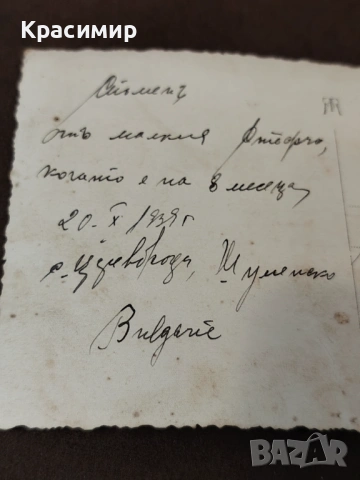 Красимир
Споменъ
отъ малкия
когато е на 8 месеца,
20. X 1939 г
с. Църевброд, Шуменско
Bulgarie
BAZAR